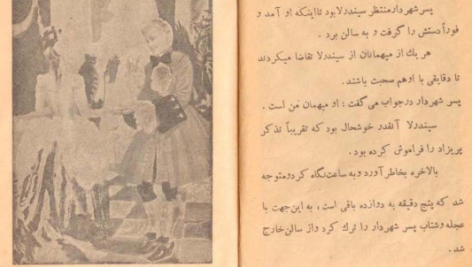 پسر شهردار منتظر سیندرلا بود تا اینکه او آمد و
فوراً دستش را گرفت و به سالن برد .
هر یك از میهمانان از سیندرلا تقاضا میکردند
تا دقایقی با او هم صحبت باشند .
پسر شهردار در جواب می گفت : او میهمان من است .
سیندرلا آنقدر خوشحال بود که تقریباً تذکر
پریزاد را فراموش کرده بود .
بالاخره بخاطر آورد و به ساعت نگاه کرد و متوجه
شد که پنج دقیقه به دوازده باقی است ، به این جهت با
عجله و شتاب پسر شهردار را ترك کرد و از سالن خارج
شد .